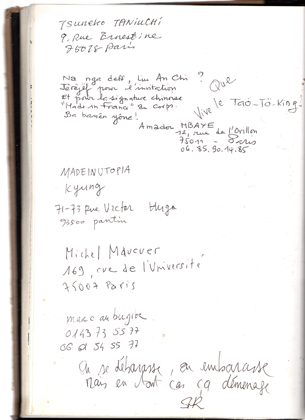 Tsuneko TANIUCHI
9, Rue Ernestine
75018 Paris
Na nga deff, Liu An Chi ?
Jërëjëf pour l'invitation
et pour la signature chinoise
"Made in France" & Corps.
Ba banëen yône!
Que
Vive le Tao-Tö-King
Amadou MBAYE
12, rue de l'Orillon
75011 - Paris
06.85.90.14.85
MADEINUTOPIA
Kyung
71-73 Rue Victor Hugo
93500 pantin
Michel
169, rue de l'Université
75007 Paris
marc
01 43 73 55 77
06 61 54 55 77
On se débarasse, on embarasse
Mais en tout cas ça déménage